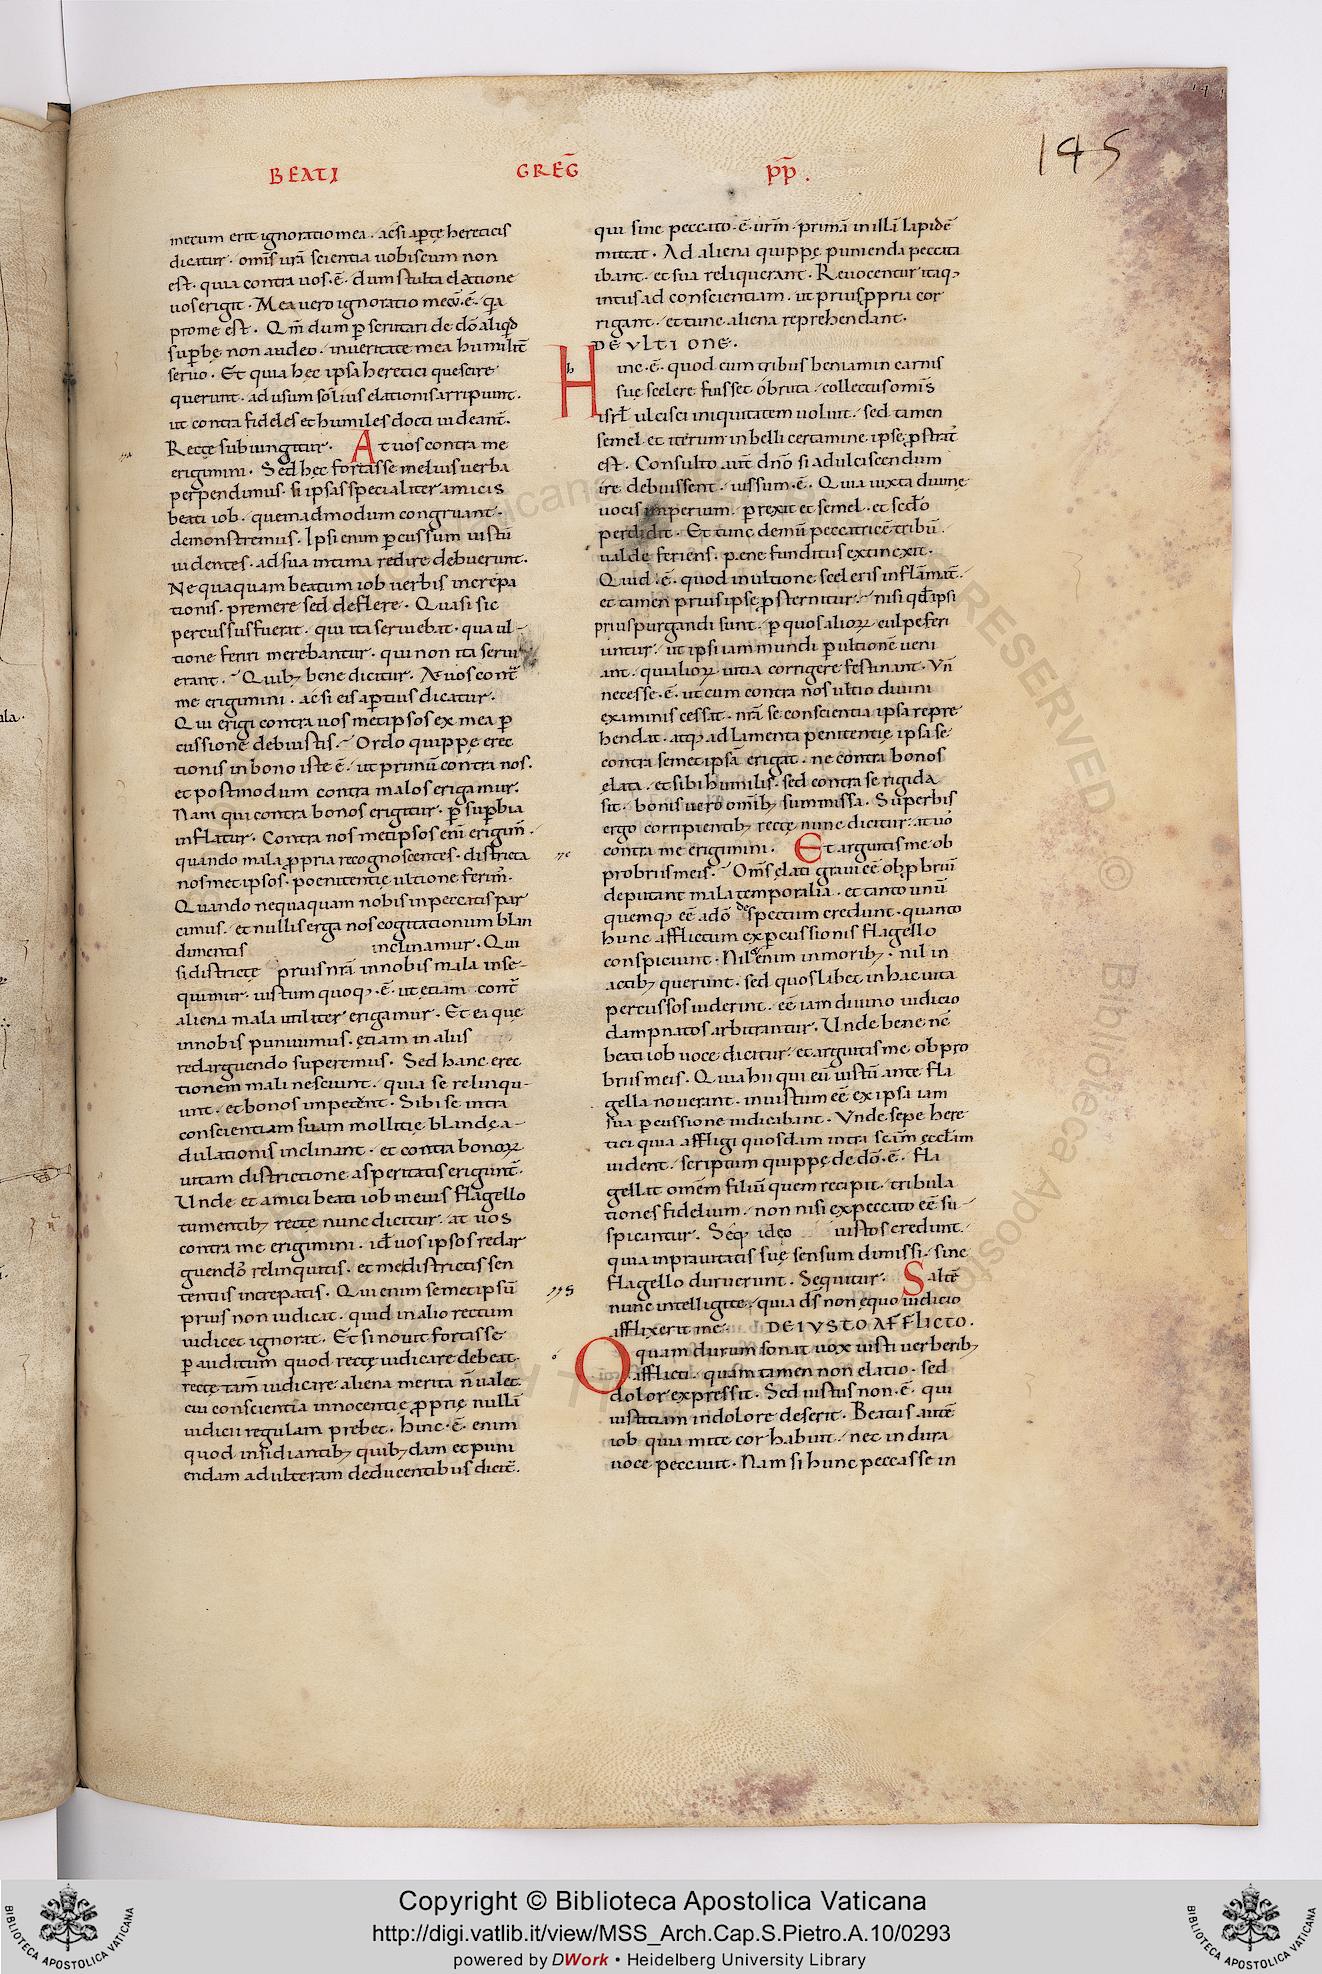 BEATI GREḠ p̄p̄.
145
mecum erit ignoratio mea. ac si aꝑte hereticis
dicatur. om̅s ur̅a scientia uobiscum non
est. quia contra uos. e̅. dum stulta elatione
uos erigit. Mea uero ignoratio mecu̅. e̅. q̅a
pro me est. Qm̅ dum ꝑscrutari de do̅ aliqd̅
suꝑbę non audeo. in ueritate mea humilit̅
seruo. Et quia hęc ipsa heretici que scire
querunt. ad usum soliuſ elationis arripiunt.
ut contra fideles et humiles docti uideant̅.
Recte subiungitur. At uos contra me
erigimini. Sed hęc fortasse melius uerba
perpendimus. si ipsas specialiter amicis
beati iob. quemadmodum congruant.
demonstremus. Ipsi enim ꝑcussum iustu̅
uidentes. ad sua intima redire debuerunt.
Nequaquam beatum iob uerbis increpa
tionis. premere sed deflere. Quasi sic
percussus fuerat. qui ita seruiebat. qua ul-
tione feriri merebantur. qui non ita serui
erant. Quibꝫ bene dicitur. At uos cont̅
me erigimini. ac si eis aꝑtius dicatur.
Qui erigi contra uosmetipsos ex mea ꝑ
cussione debuistis. Ordo quippę erec
tionis in bono iste e̅. ut primu̅ contra nos.
et postmodum contra malos erigamur.
Nam qui contra bonos erigitur. ꝑ suꝑbia
inflatur. Contra nosmetipsos eni̅ erigim̅.
quando mala ꝓpria recognoscentes. districta
nosmetipsos. poenitentię ultione ferim̅.
Quando nequaquam nobis in peccatis par
cimus. et nullis erga nos cogitationum blan
dimentis inclinamur. Qui
si districtę prius nr̅a in nobis mala inse-
quimur. iustum quoqꝫ. e̅. ut etiam cont̅
aliena mala utiliter erigamur. Et ea quę
in nobis puniuimus. etiam in aliis
redarguendo superemus. Sed hanc erec
tionem mali nesciunt. quia se relinqu-
unt. et bonos impetunt. Sibi se intra
conscientiam suam mollitię blandę a-
dulationis inclinant. et contra bonoꝝ
uitam districtione asperitatis erigunt̅.
Unde et amici beati iob in eius flagello
tumentibꝫ recte nunc dicitur. at uos
contra me erigimini. id̅ uos ipsos redar
guendo̅ relinquitis. et me districtis sen
tentiis increpatis. Qui enim semetipsu̅
prius non iudicat. quid in alio rectum
iudicet ignorat. Et si nouit fortasse
ꝑ auditum quod rectę iudicare debeat.
recte tam̅ iudicare aliena merita n̅ ualet.
cui conscientia innocentię ꝓprię nulla̅
iudicii regulam prebet. Hinc. e̅. enim
quod insidiantibꝫ quibꝫdam et puni
endam adulteram deducentibus dicit̅.
qui sine peccato. e̅. ur̅m. prima̅ in illa̅ lapide̅
mittat. Ad aliena quippę punienda peccata
ibant. et sua reliquerant. Reuocentur itaqꝫ
intus ad conscientiam. ut prius ꝓpria cor
rigant. et tunc aliena reprehendant.
DE VLTIONE.
Hinc. e̅. quod cum tribus beniamin carnis
suę scelere fuisset obruta. collectus om̅s
isrl̅ ulcisci iniquitatem uoluit. sed tamen
semel et iterum in belli certamine ipse ꝓstrat̅
est. Consulto aut̅ dn̅o si ad ulciscendum
ire debuissent. iussum. e̅. Quia iuxta diuinę
uocis imperium. ꝑrexit et semel. et scd̅o
perdidit. Et tunc demu̅ peccatrice̅ tribu̅.
ualde feriens. pene funditus extinxit.
Quid. e̅. quod in ultione sceleris infla̅mat̅.
et tamen prius ipse ꝓsternitur. nisi qd̅ ipsi
prius purgandi sunt. ꝑ quos alioꝝ culpe feri
untur. ut ipsi iam mundi ꝑ ultione̅ ueni
ant. qui alioꝝ uitia corrigere festinant. Vn̅
necesse. e̅. ut cum contra nos ultio diuini
examinis cessat. nr̅a se conscientia ipsa repre
hendat. atqꝫ ad lamenta penitentię ipsa se
contra semetipsa̅ erigat. ne contra bonos
elata. et sibi humilis. sed contra se rigida
sit. bonis uero om̅ibꝫ summissa. Superbis
ergo corripientibꝫ rectę nunc dicitur. at uo̅
contra me erigimini. Et arguitis me ob
probriis meis. Om̅s elati graui ee̅ obꝓbriu̅
deputant mala temporalia. et tanto unu̅
quemqꝫ ee̅ a do̅ despectum credunt. quanto
hunc afflictum ex ꝑcussionis flagello
conspiciunt. Nil enim in moribꝫ. nil in
actibꝫ querunt. sed quoslibet in hac uita
percussos uiderint. ee̅ iam diuino iudicio
dampnatos arbitrantur. Unde bene nc̅
beati iob uoce dicitur. et arguitis me. obpro
briis meis. Quia hii qui eu̅ iustu̅ ante fla
gella nouerant. iniustum ee̅ ex ipsa iam
sua ꝑcussione iudicabant. Vnde sepe here
tici quia affligi quosdam intra sca̅m eccl̅am
uident. scriptum quippę de do̅. e̅. fla
gellat om̅em filiu̅ quem recipit. tribula
tiones fidelium. non nisi ex peccato ee̅ su-
spicantur. Seq̅ ideo iustos credunt.
quia in prauitatis suę sensum dimissi. sine
flagello duruerunt. Sequitur. Salte̅
nunc intelligite. quia ds̅ non ęquo iudicio
afflixerit me. DE IVSTO AFFLICTO.
O quam durum sonat uox iusti uerberibꝫ
afflicti. quam tamen non elatio. sed
dolor expressit. Sed iustus non. e̅. qui
iustitiam in dolore deserit. Beatus aute̅
iob quia mite cor habuit. nec in dura
uoce peccauit. Nam si hunc peccasse in
Copyright © Biblioteca Apostolica Vaticana
http://digi.vatlib.it/view/MSS_Arch.Cap.S.Pietro.A.10/0293
powered by DWork • Heidelberg University Library